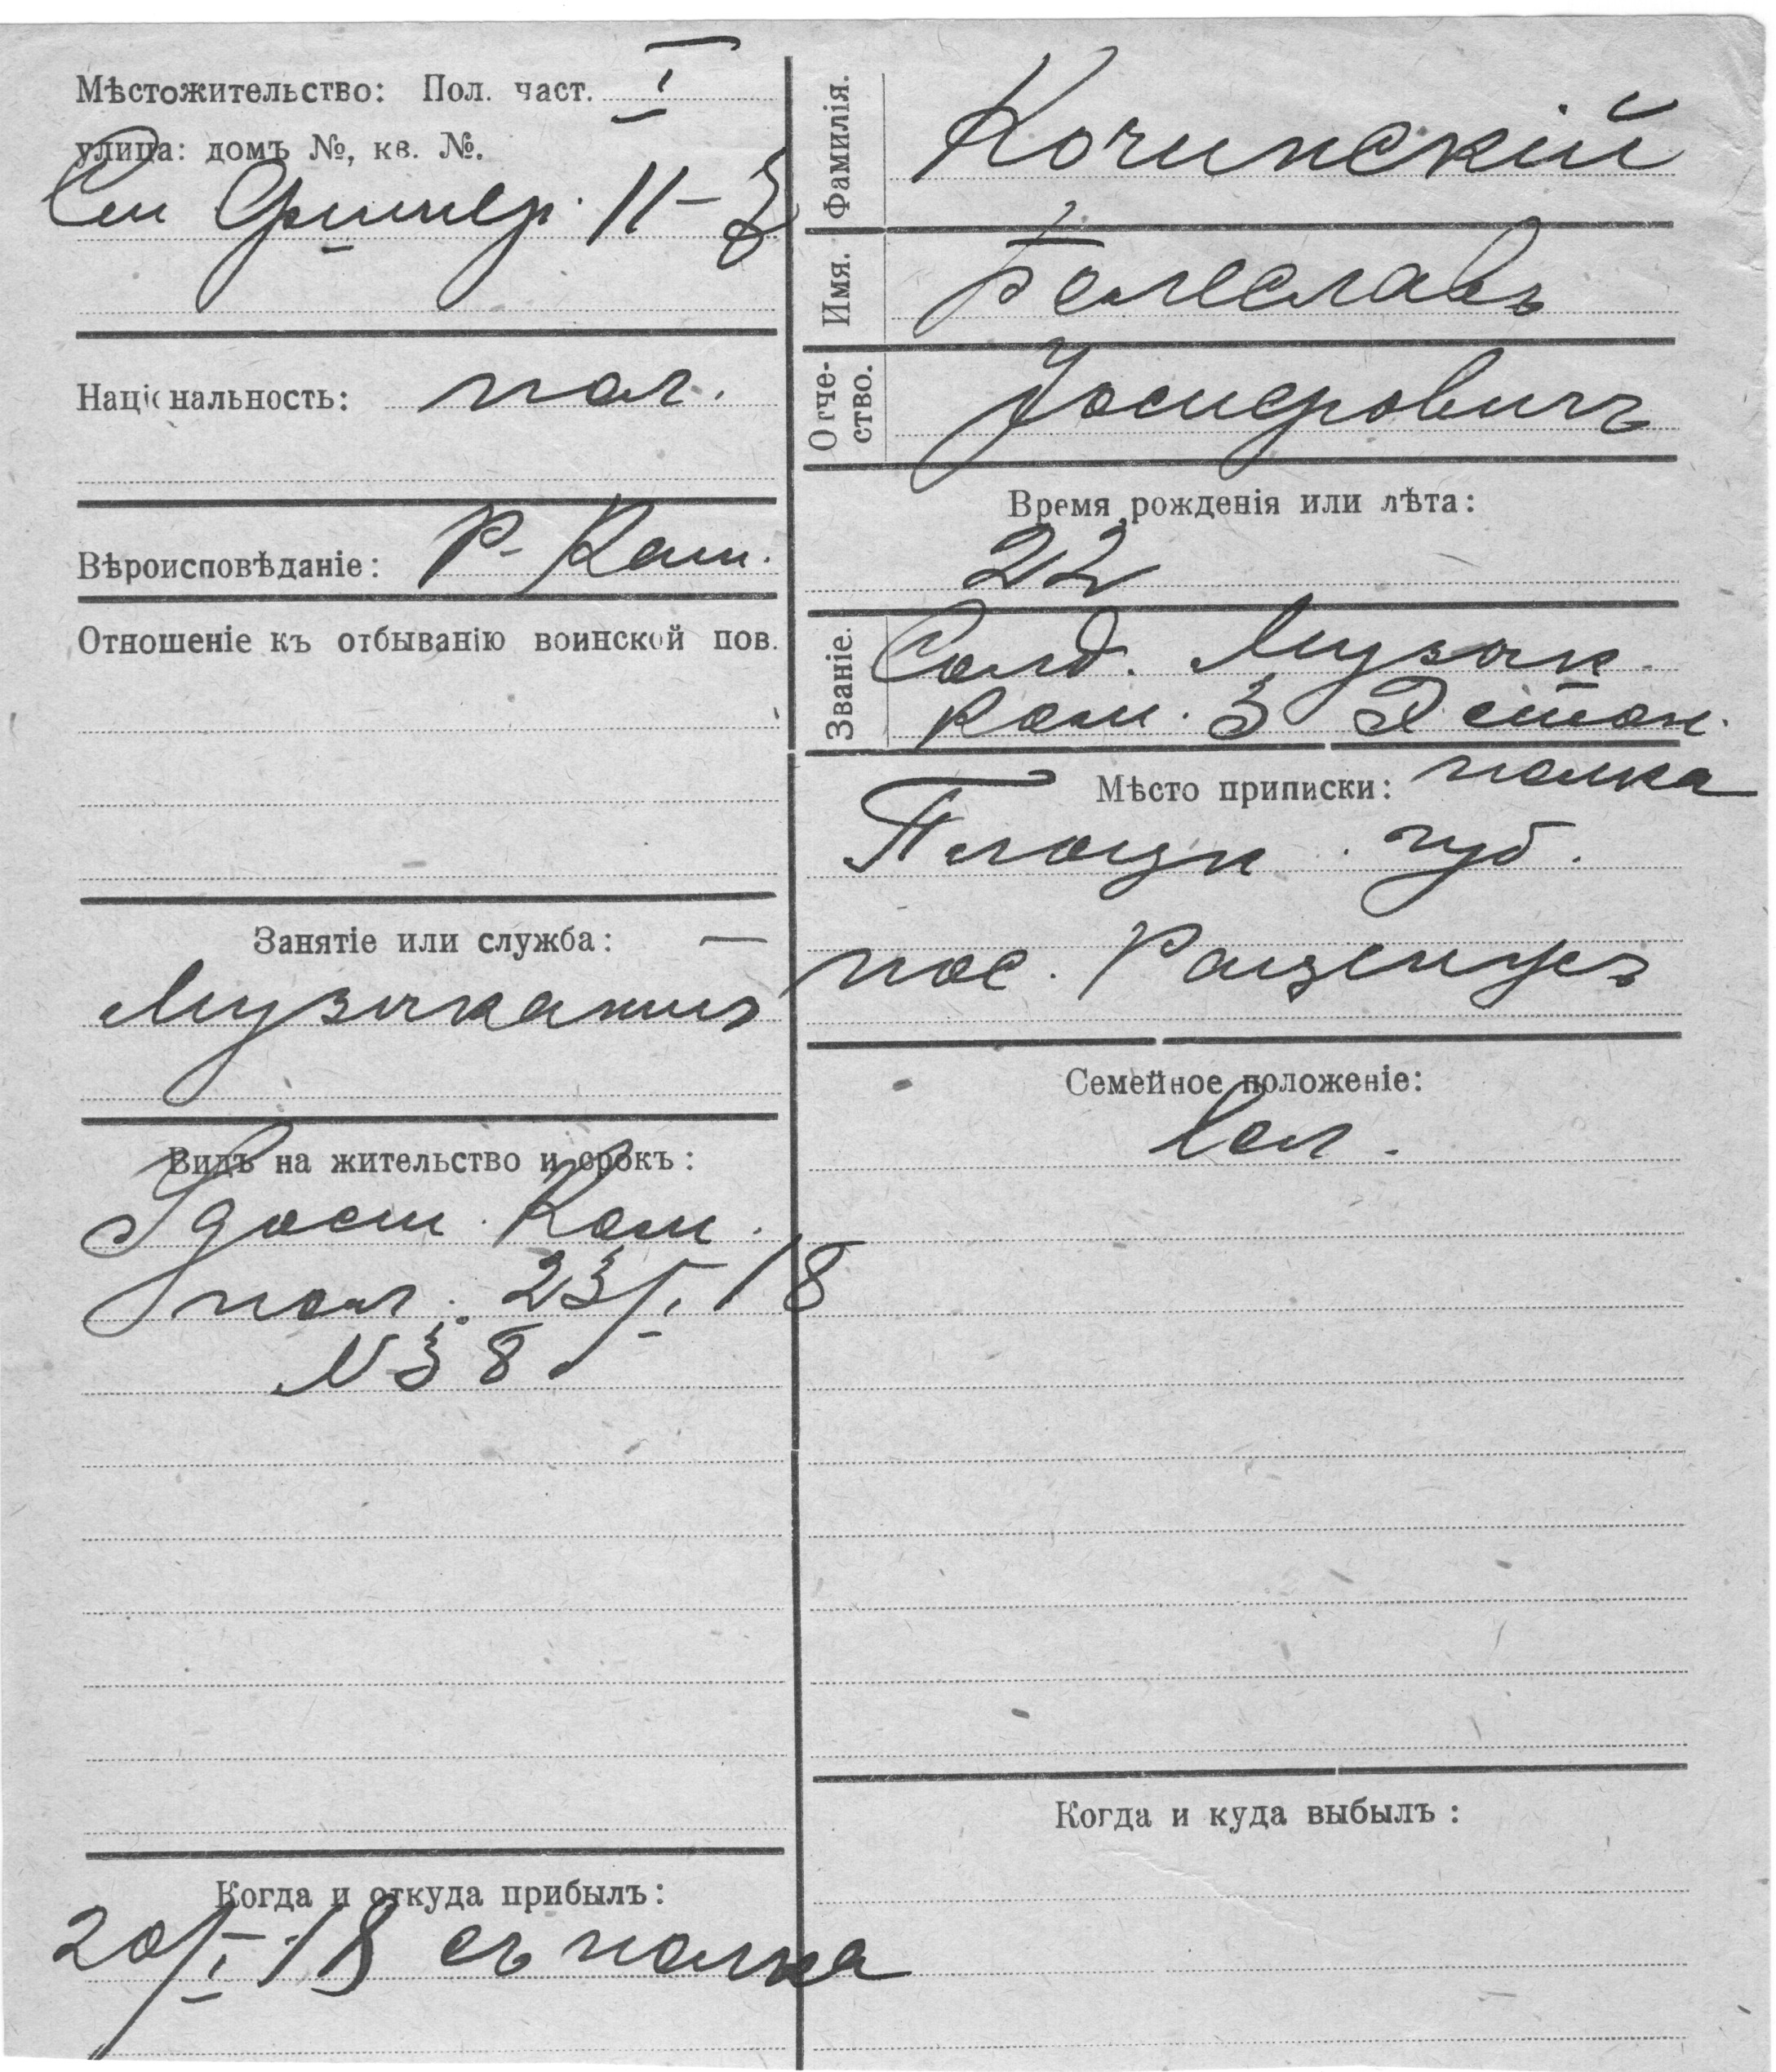 Мѣстожительство: Пол. част. I
улица: домъ №, кв. №.
11-3
Національность: пол.
Вѣроисповѣданіе: Р-Кат.
Отношеніе къ отбыванію воинской пов.
Занятіе или служба: —
Музыкантъ
Видъ на жительство и срокъ:
Удост. Ком.
пол. 23/I. 18
N 38
Когда и откуда прибылъ:
20/I. 18 съ полка
Фамилія. Кочинскій
Имя. Болеславъ
Отче-
ство. Іосифовичъ
Время рожденія или лѣта:
22
Званіе. Солд. Музык.
Ком. 3 Эстон.
полка
Мѣсто приписки:
Плоцк. губ.
пос. Раценжъ
Семейное положеніе:
хол.
Когда и куда выбылъ: